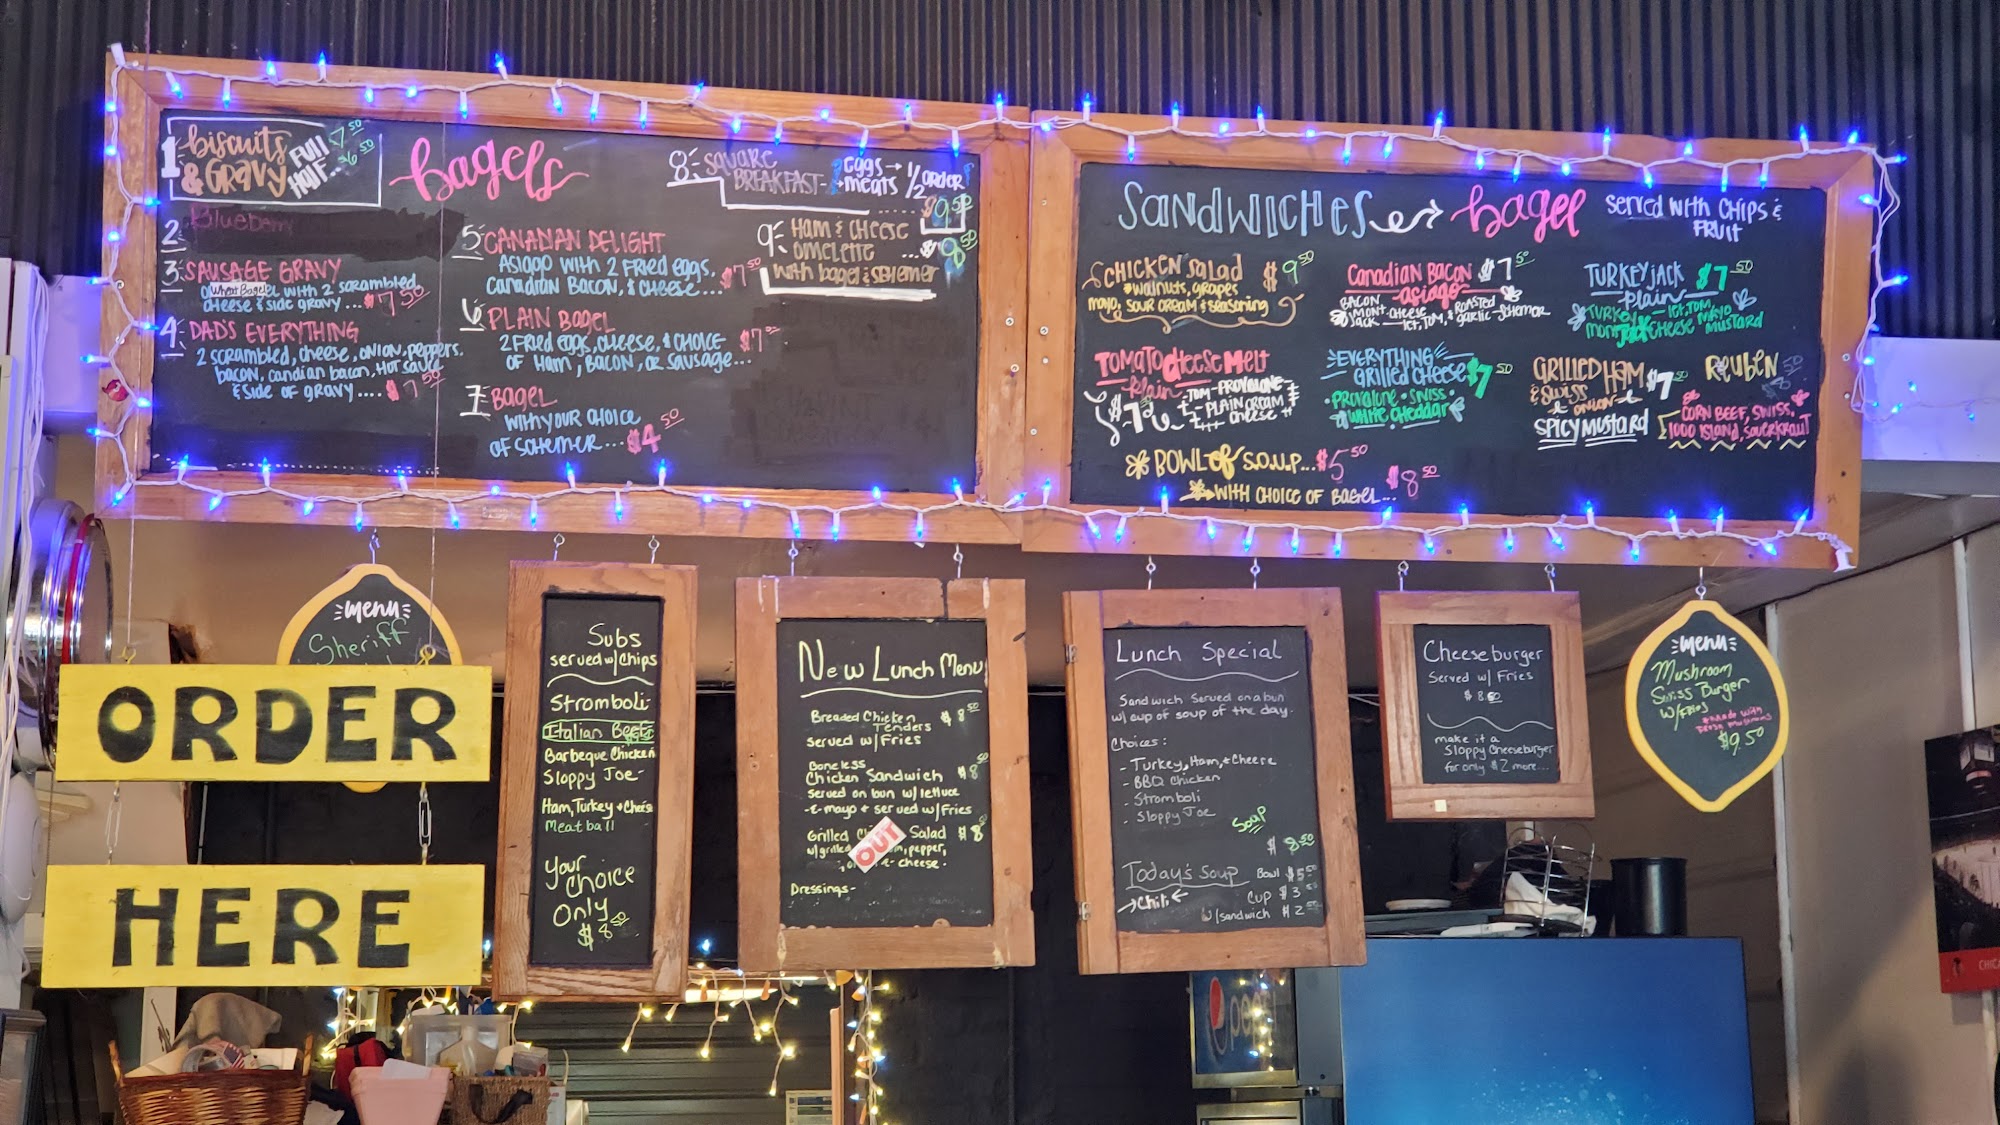 1 biscuits
& GRAVY
Full 7 50
Half... 6 50
bagels
2 Blueberry
3 SAUSAGE GRAVY
Wheat Bagel with 2 scrambled,
cheese & side gravy ... $7 50
4 DAD'S EVERYTHING
2 scrambled, cheese, onion, peppers,
bacon, candian bacon, Hot sauce
& side of gravy .... $7 50
5 CANADIAN DELIGHT
ASIAGO WITH 2 FRIED eggs,
CANADIAN BACON, & CHEESE ... $7 50
6 PLAIN BAGEL
2 FRIED eggs, cheese, & CHOICE
OF HAM, BACON, OR SAUSAGE...
$7
7 BAGEL
WITH YOUR CHOICE
OF SCHEMER ... $4 50
8 SQUARE
BREAKFAST-
eggs → 1/2 ORDER
meats
$9 50
9 HAM & CHEESE
OMELETTE ... $8 50
with bagel & SCHEMER
SANDWICHES → bagel
served with CHIPS &
FRUIT
CHICKEN SALAD $9 50
walnuts, grapes
mayo, sour cream & seasoning
CANADIAN BACON $7 50
asiago
BACON
MONT. CHEESE ROASTED
JACK - LET, TOM, & GARLIC SCHEMER
TURKEY JACK $7 50
plain
TURKEY LET, TOM,
mont JACK CHEESE MAYO
MUSTARD
TOMATO CHEESE MELT
plain
$7
TOM-PROVOLONE
PLAIN CREAM
CHEESE
EVERYTHING
GRILLED CHEESE $7 50
PROVOLONE • SWISS
WHITE CHEDDAR
GRILLED HAM $7 50
& SWISS
ONION
SPICY MUSTARD
REUBEN
$8 50
CORN BEEF, SWISS,
1000 ISLAND, SAUERKRAUT
BOWL OF S.O.U.P... $5 50
WITH CHOICE OF BAGEL... $8 50
menu
Sheriff
ORDER
HERE
Subs
served w/ Chips
Stromboli
Italian Beef
Barbeque Chicken
Sloppy Joe-
Ham, Turkey + Cheese
Meatball
Your
Choice
Only
$8 50
New Lunch Menu
Breaded Chicken $8 50
Tenders
served w/ Fries
Boneless
Chicken Sandwich $8 50
served on bun w/ lettuce
+ mayo + served w/ Fries
Grilled Salad $8 50
w/ grilled pepper,
cheese.
OUT
Dressings-
Lunch Special
Sandwich Served on a bun
w/ cup of soup of the day.
Choices:
- Turkey, Ham, + Cheese
- BBQ Chicken
- Stromboli
- Sloppy Joe
Soup
$ 8.50
Today's Soup Bowl $5 50
→ Chili ← Cup $3 50
w/sandwich $2 50
Cheeseburger
Served w/ Fries
$ 8.50
make it a
Sloppy Cheeseburger
for only $2 more...
menu
Mushroom
Swiss Burger
w/ Fries
made with
fresh mushrooms
$9.50
pepsi